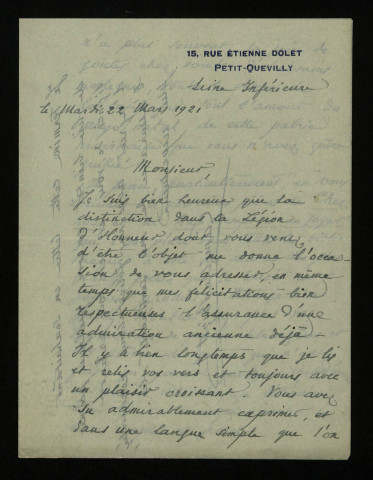 15, RUE ÉTIENNE DOLET
PETIT-QUEVILLY
Seine Inférieure
le Mardi 22 Mars 1921
Monsieur,
Je suis bien heureux que la
distinction dans la Légion
d'Honneur dont vous venez
d'être l'objet me donne l'occa
sion de vous adresser, en même
temps que mes félicitations bien
respectueuses l'assurance d'une
admiration ancienne déjà -
Il y a bien longtemps que je lis
et relis vos vers et toujours avec
un plaisir croissant. Vous avez
su admirablement exprimer, et
dans une langue simple que l'on